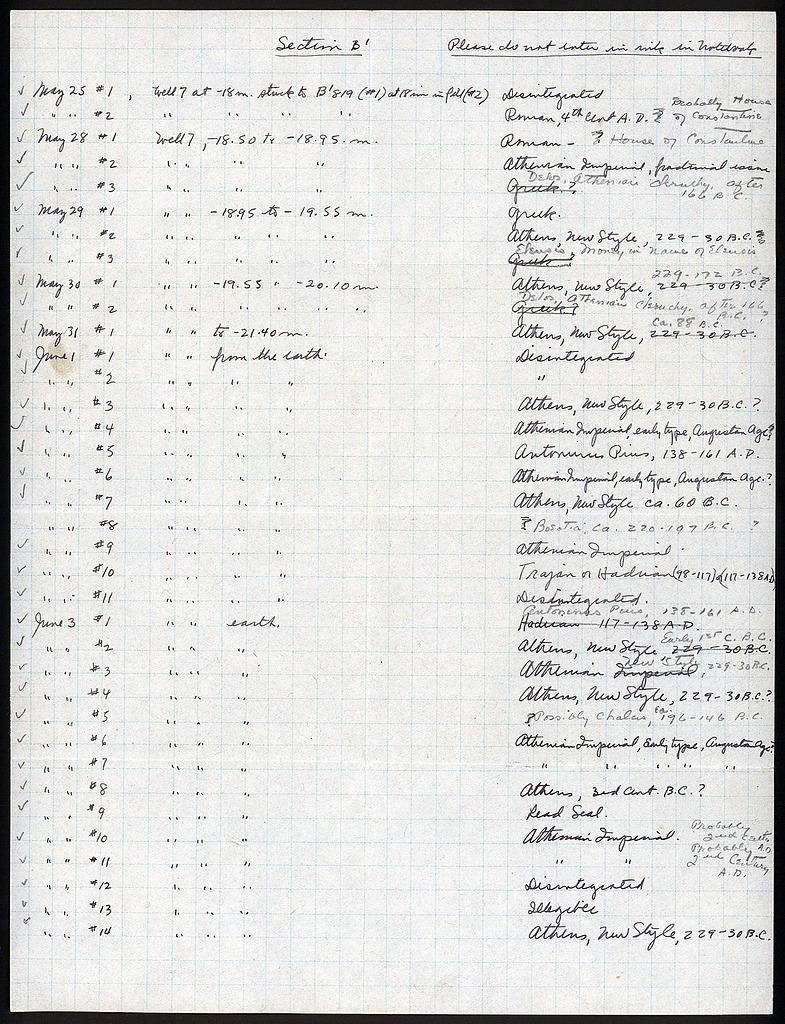 Section B' Please do not enter in ink in Notebook
✓ May 25 #1, Well 7 at -18 m. stuck to B'819 (#1) at 18 m in (#2) Disintegrated
✓ " " #2 " " " " " Roman, 4th Cent A.D. ? Probably House of Constantine
✓ May 28 #1 Well 7, -18.50 to -18.95 m. Roman - ? House of Constantine
✓ " " #2 " " " " Athenian Imperial, fractional issue
✓ " " #3 " " " " Greek ? Delos, Athenian cleruchy, after 166 B.C.
✓ May 29 #1 " " -1895 to -19.55 m. Greek.
✓ " " #2 " " " " " Athens, New Style, 229-30 B.C. ?
✓ " " #3 " " " " " Greek Eleusis, Money in name of Eleusis
✓ May 30 #1 " " -19.55 " -20.10 m. Athens, New Style, 229-30 B.C.? 229-172 B.C.
✓ " " #2 " " " " " " Greek? Delos, Athenian cleruchy, after 166 B.C. ?
✓ May 31 #1 " " to -21.40 m. Athens, New Style, 229-30 B.C. ca. 88 B.C.
✓ June 1 #1 " " from the earth. Disintegrated
✓ " " #2 " " " " "
✓ " " #3 " " " " Athens, New Style, 229-30 B.C. ?
✓ " " #4 " " " " Athenian Imperial, early type, Augustan Age?
✓ " " #5 " " " " Antoninus Pius, 138-161 A.D.
✓ " " #6 " " " " Athenian Imperial, early type, Augustan Age. ?
✓ " " #7 " " " " Athens, New Style ca. 60 B.C.
" " #8 " " " " ? Boeotia, ca. 220-197 B.C. ?
✓ " " #9 " " " " Athenian Imperial.
✓ " " #10 " " " " Trajan or Hadrian (98-117) or (117-138 A.D)
✓ " " #11 " " " " Disintegrated.
✓ June 3 #1 " " earth. Hadrian 117-138 A.D. Antoninus Pius, 138-161 A.D.
✓ " " #2 " " " Athens, New Style 229-30 B.C. Early 1st C. B.C.
✓ " " #3 " " " Athenian Imperial, New Style, 229-30 B.C.
✓ " " #4 " " " Athens, New Style, 229-30 B.C.?
✓ " " #5 " " " ? Possibly Chalcis, ca. 196-146 B.C.
✓ " " #6 " " " Athenian Imperial, Early type, Augustan Age?
✓ " " #7 " " " " " " " "
✓ " " #8 " " " Athens, 3rd Cent. B.C. ?
✓ " " #9 " " " Lead Seal.
✓ " " #10 " " " Athenian Imperial. Probably 2nd Cent. A.D.
✓ " " #11 " " " " " Probably 2nd Century A.D.
✓ " " #12 " " " Disintegrated
✓ " " #13 " " " Illegible
✓ " " #14 " " " Athens, New Style, 229-30 B.C.